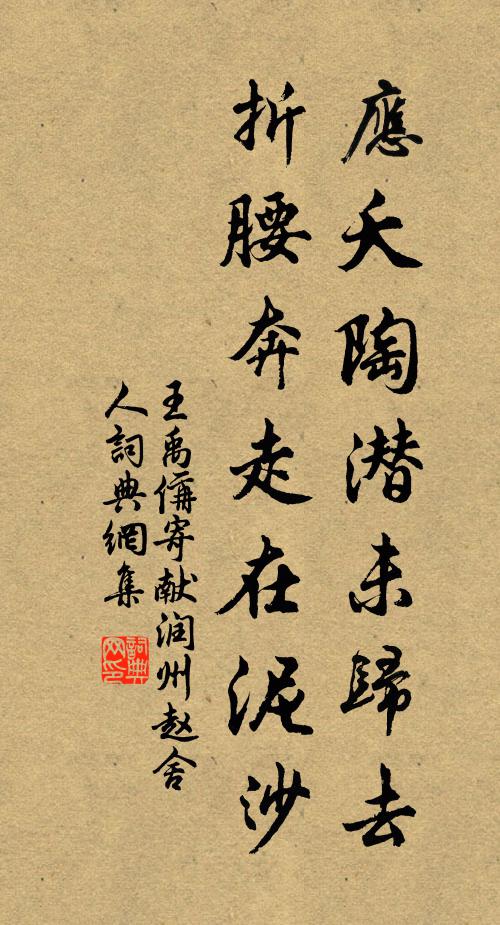 應夭陶潜未歸去
折腰奔走在泥沙
王禹偁寄献润州赵舍
人詞典網集
詞典
网印